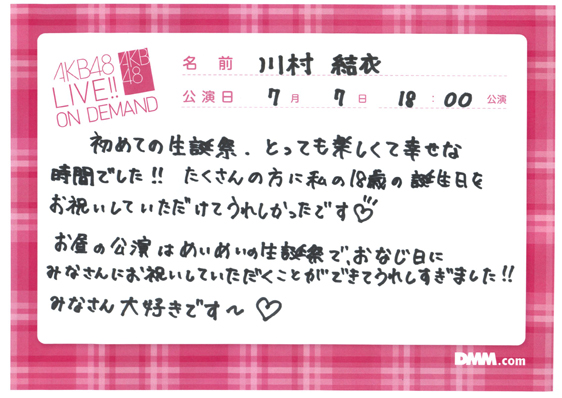 AKB48
LIVE!!
ON DEMAND
AKB
48
名前 川村 結衣
公演日 7月 7日 18:00 公演
初めての生誕祭、とっても楽しくて幸せな
時間でした!! たくさんの方に私の18歳の誕生日を
お祝いしていただけてうれしかったです♡
お昼の公演はめいめいの生誕祭で、おなじ日に
みなさんにお祝いしていただくことができてうれしすぎました!!
みなさん大好きです〜♡
DMM.com